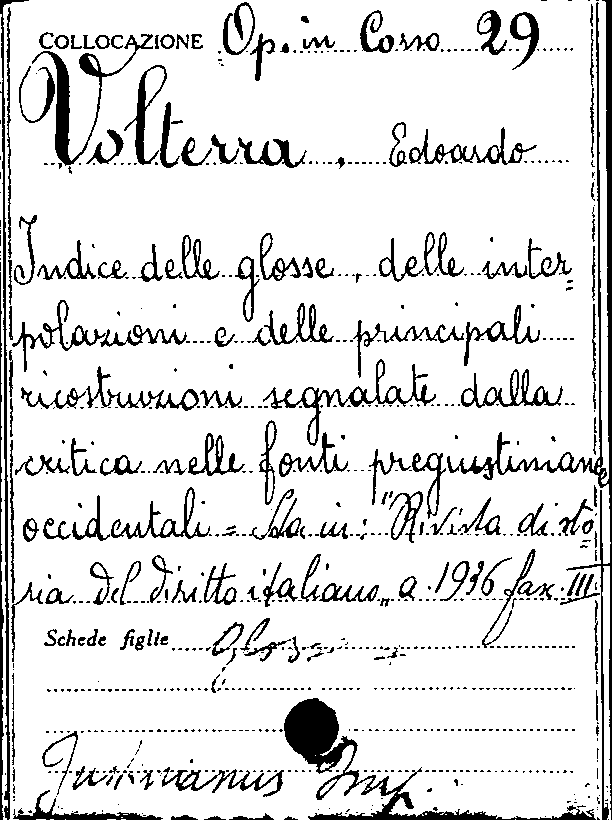 COLLOCAZIONE Op. in Corso 29
Volterra, Edoardo
Indice delle glosse, delle inter=
polazioni e delle principali
ricostruzioni segnalate dalla
critica nelle fonti pregiustiniane
occidentali = Sta in: "Rivista di sto=
ria del diritto italiano" a. 1936 fax. III
Schede figlie Glosse
Justinianus Imp.